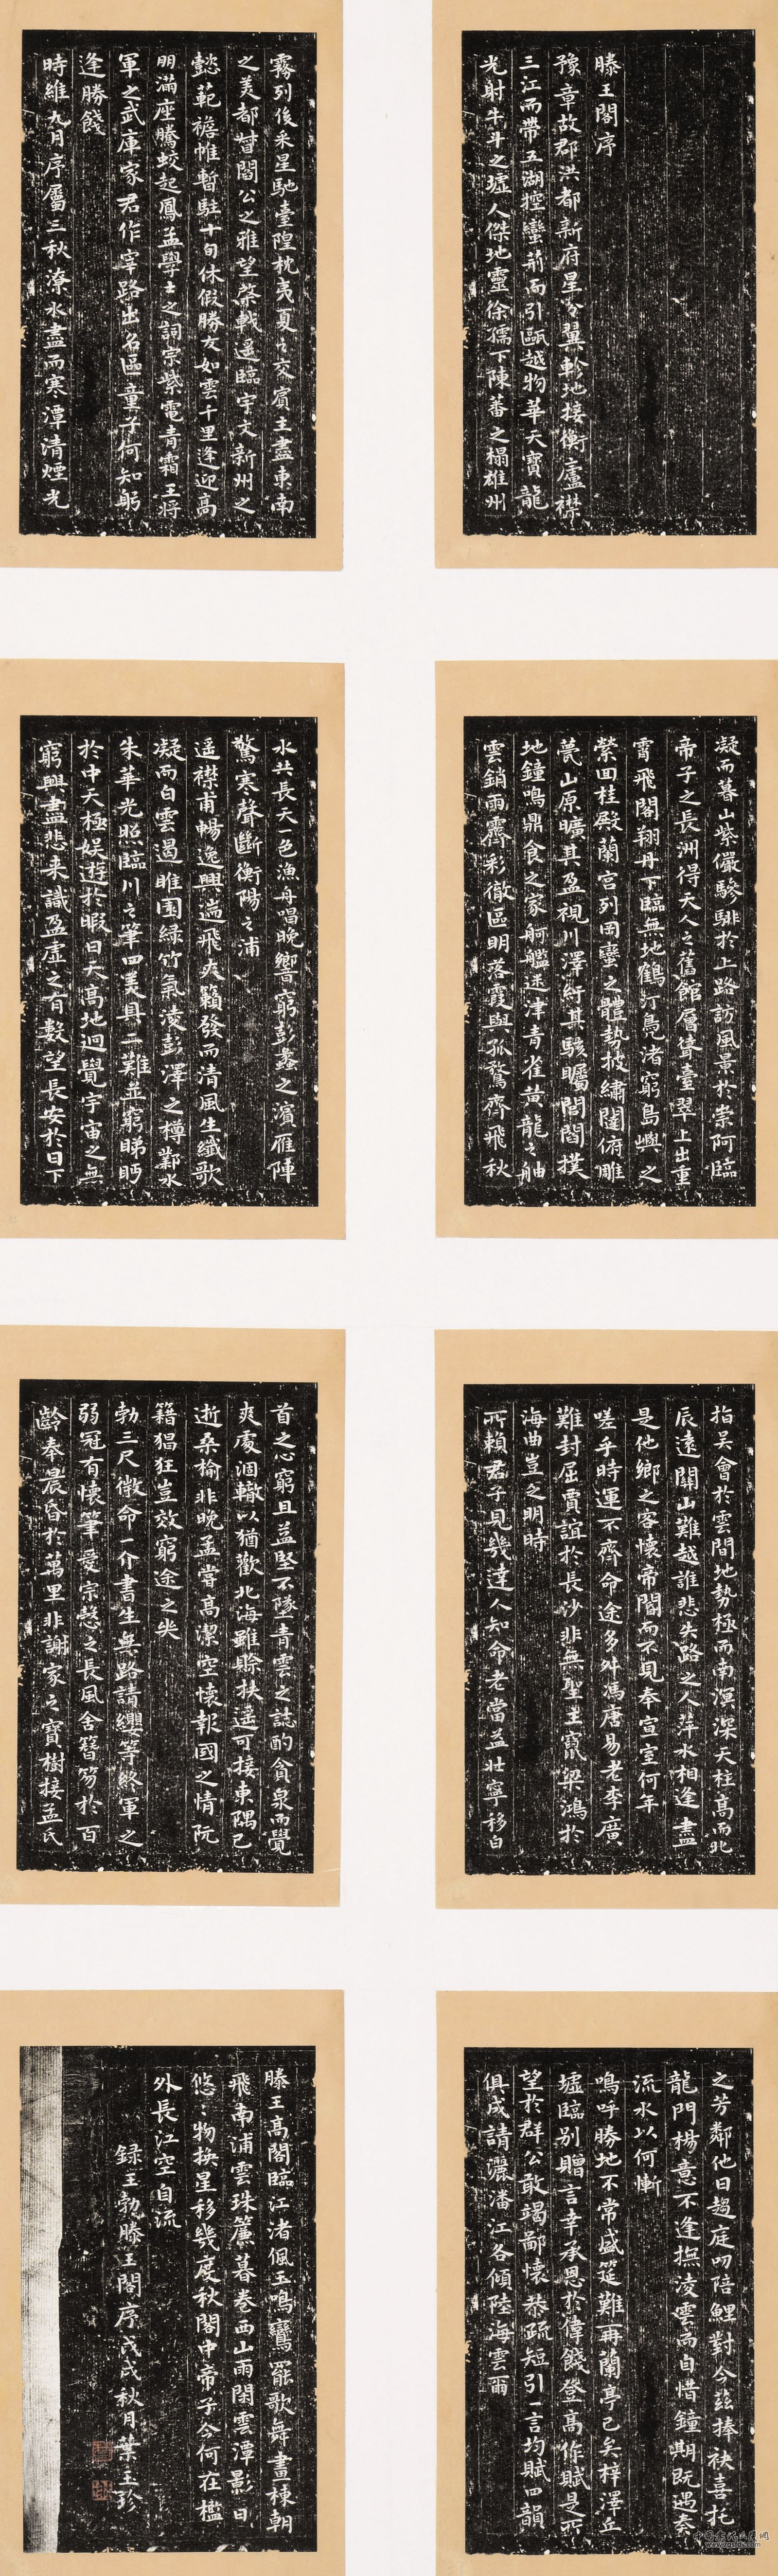 滕王閣序
豫章故郡洪都新府星分翼軫地接衡廬襟
三江而帶五湖控蠻荊而引甌越物華天寶龍
光射牛斗之墟人傑地靈徐孺下陳蕃之榻雄州
霧列俊采星馳臺隍枕夷夏之交賓主盡東南
之美都督閻公之雅望棨戟遙臨宇文新州之
懿範襜帷暫駐十旬休假勝友如雲千里逢迎高
朋滿座騰蛟起鳳孟學士之詞宗紫電青霜王將
軍之武庫家君作宰路出名區童子何知躬
逢勝餞
時維九月序屬三秋潦水盡而寒潭清煙光
凝而暮山紫儼驂騑於上路訪風景於崇阿臨
帝子之長洲得天人之舊館層聳臺翠上出重
霄飛閣翔丹下臨無地鶴汀鳧渚窮島嶼之
縈回桂殿蘭宮列岡巒之體勢披繡闥俯雕
甍山原曠其盈視川澤紆其駭矚閭閻撲
地鐘鳴鼎食之家舸艦迷津青雀黃龍之舳
雲銷雨霽彩徹區明落霞與孤鶩齊飛秋
水共長天一色漁舟唱晚響窮彭蠡之濱雁陣
驚寒聲斷衡陽之浦
遥襟甫暢逸興遄飛爽籟發而清風生纖歌
凝而白雲遏睢園綠竹氣淩彭澤之樽鄴水
朱華光照臨川之筆四美具二難並窮睇眄
於中天極娛遊於暇日天高地迥覺宇宙之無
窮興盡悲來識盈虛之有數望長安於日下
指吳會於雲間地勢極而南溟深天柱高而北
辰遠關山難越誰悲失路之人萍水相逢盡
是他鄉之客懷帝閽而不見奉宣室何年
嗟乎時運不齊命途多舛馮唐易老李廣
難封屈賈誼於長沙非無聖主竄梁鴻於
海曲豈乏明時
所賴君子見幾達人知命老當益壯寧移白
首之心窮且益堅不墜青雲之誌酌貪泉而覺
爽處涸轍以猶歡北海雖賒扶遥可接東隅已
逝桑榆非晚孟嘗高潔空懷報國之情阮
籍猖狂豈效窮途之哭
勃三尺微命一介書生無路請纓等終軍之
弱冠有懷筆愛宗慤之長風舍簪笏於百
齡奉晨昏於萬里非謝家之寶樹接孟氏
之芳鄰他日趨庭叨陪鯉對今兹捧袂喜托
龍門楊意不逢撫凌雲而自惜鐘期既遇奏
流水以何慚
嗚呼勝地不常盛筵難再蘭亭已矣梓澤丘
墟臨別贈言幸承恩於偉餞登高作賦是所
望於群公敢竭鄙懷恭疏短引一言均賦四韻
俱成請灑潘江各傾陸海雲爾
滕王高閣臨江渚佩玉鳴鸞罷歌舞畫棟朝
飛南浦雲珠簾暮卷西山雨閑雲潭影日
悠悠物換星移幾度秋閣中帝子今何在檻
外長江空自流
錄王勃滕王閣序戊戌秋月葉玉珍